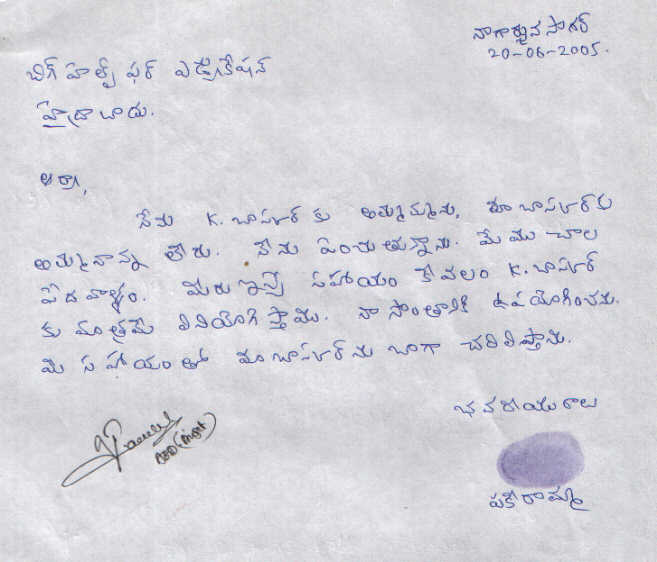 నాగార్జున సాగర్
20-06-2005.
బిగ్ హెల్ప్ ఫర్ ఎడ్యుకేషన్
హైద్రాబాదు.
ఆర్యా,
నేను K. బాస్కర్ కు అమ్మమ్మను, మా బాస్కర్‌కు
అమ్మనాన్న లేరు. నేను పెంచుతున్నాను. మేము చాల
పేద వాళ్ళం. మీరు ఇచ్చే సహాయం కేవలం K. బాస్కర్
కు మాత్రమే వినియోగిస్తాము. నా సొంతానికి ఉపయోగించను.
మీ సహాయంతో మా బాస్కర్‌ను బాగా చదివిస్తాను.
భవదీయురాలు
పకీరామ్మ